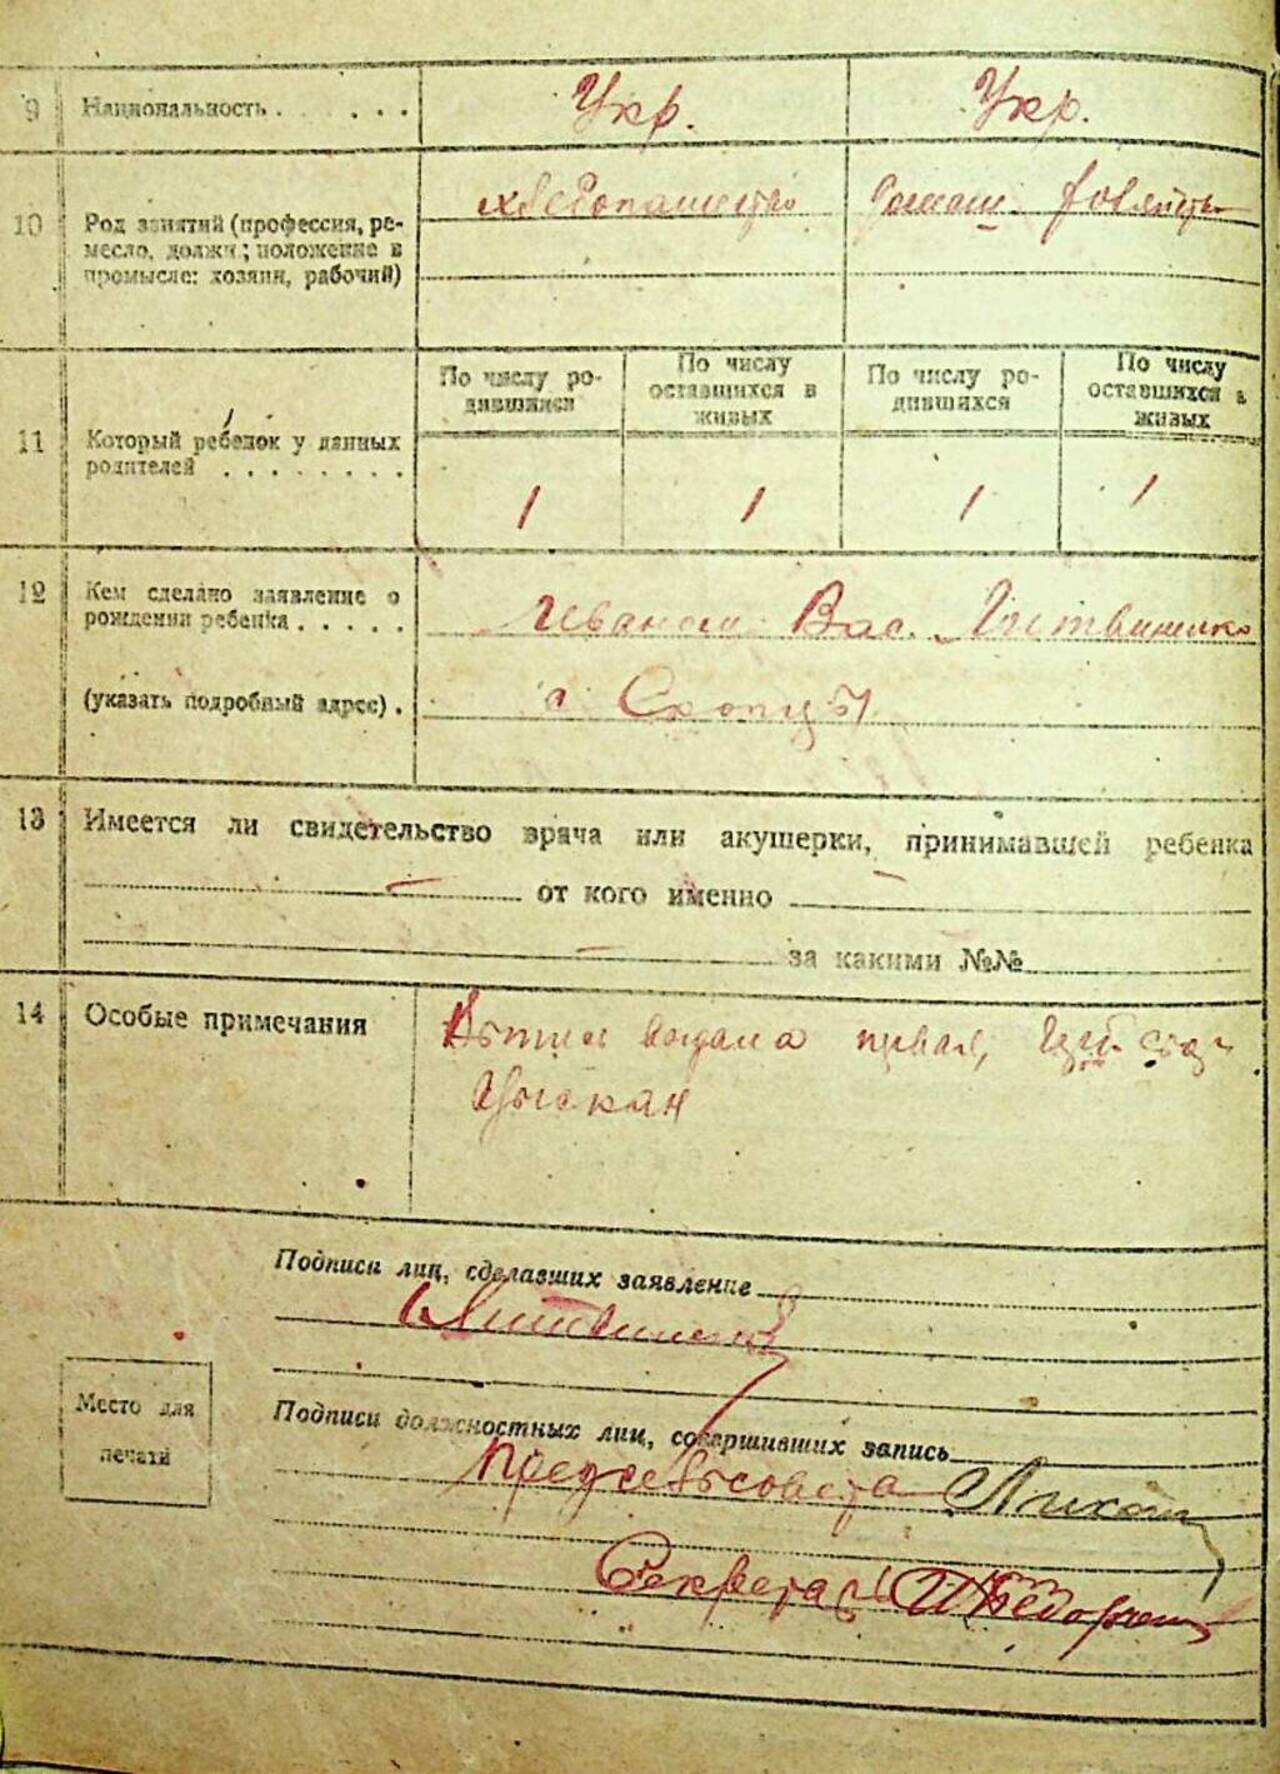 9 Национальность . . . . . Укр. Укр.
10 Род занятий (профессия, ре-
месло, должн; положение в
промысле: хозяин, рабочий)
хлебопашество домаш.
По числу ро-
дившихся
По числу
оставшихся в
живых
По числу ро-
дившихся
По числу
оставшихся в
живых
11 Который ребенок у данных
родителей . . . . . . . .
1 1 1 1
12 Кем сделано заявление о
рождении ребенка . . . . .
Иваном Вас. Литвиненко
(указать подробный адрес) .
с Скопцы
13 Имеется ли свидетельство врача или акушерки, принимавшей ребенка
— от кого именно —
— за какими №№
14 Особые примечания
выдана
Подписи лиц, сделавших заявление
Подписи должностных лиц, совершивших запись
Место для
печати
Предсельсовета
Секретарь